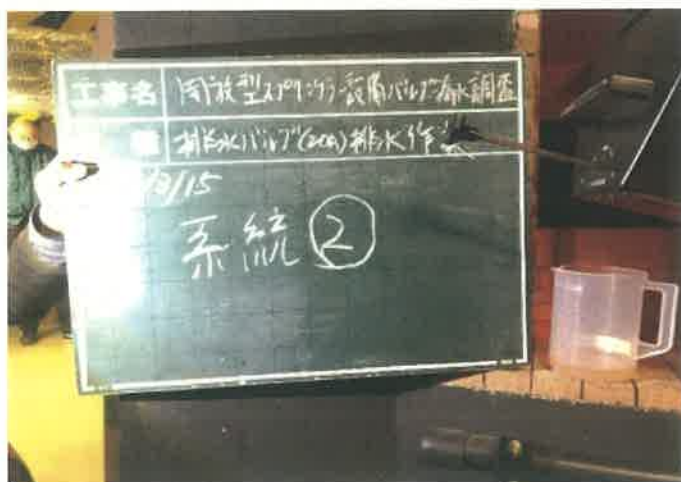 工事名 開放型スプリンクラー設備バルブ漏水調査
排水バルブ(20A)排水作業
/15
系統②